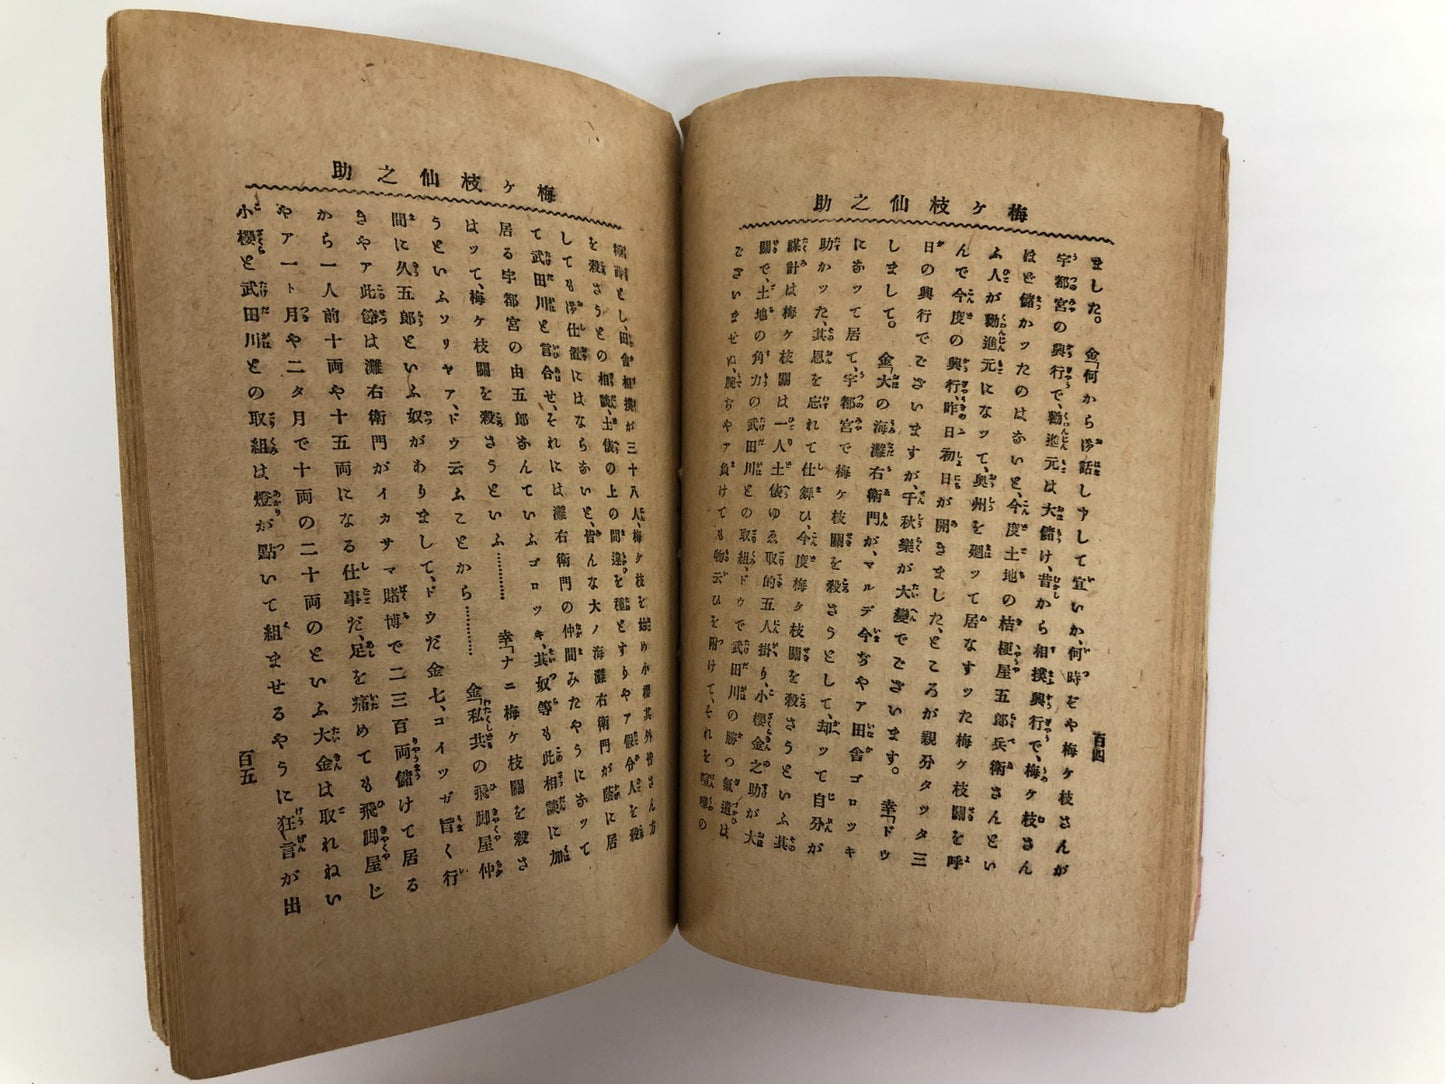 梅ヶ枝仙之助
ました。　金「何から御話し申して宜いか、何時ぞや梅ヶ枝さんが
宇都宮の興行で、勸進元は大儲け、昔から相撲興行で、梅ヶ枝さん
ほど儲かッたのはないと、今度土地の桔梗屋五郎兵衛さんとい
ふ人が勸進元になッて、奥州を廻ッて居なすッた梅ヶ枝關を呼
んで今度の興行、昨日初日が開きました、ところが親分タッタ三
日の興行でございますが、千秋樂が大變でございます。　幸「ドウ
しまして。　金「大の海灘右衛門が、マルデ今ぢやア田舎ゴロッキ
になッて居て、宇都宮で梅ヶ枝關を殺さうとして、却ッて自分が
助かッた、其恩を忘れて仕舞ひ、今度梅ヶ枝關を殺さうといふ其
謀計は梅ヶ枝關は一人土俵ゆゑ取的五人掛り、小櫻金之助が大
關で、土地の角力の武田川との取組、ドウで武田川の勝つ氣遣は
ございませぬ、腕ぢやア負けても物云ひを附けて、それを喧嘩の
百四
梅ヶ枝仙之助
とし、田舎相撲が三十八人、梅ヶ枝を始め小櫻其外皆さん方
を殺さうとの相談、土俵の上の間違を種とすりやア假令人を殺
しても御仕置にはならないと、皆んな大ノ海灘右衛門が蔭に居
て武田川と言合せ、それには灘右衛門の仲間みたやうになッて
居る宇都宮の由五郎なんていふゴロッキ、其奴等も此相談に加
はッて、梅ヶ枝關を殺さうといふ…………　幸「ナニ梅ヶ枝關を殺さ
うといふソリヤア、ドウ云ふことから…………　金「私共の飛脚屋仲
間に久五郎といふ奴がありまして、ドウだ金七、コイツガ旨く行
きやア此節は灘右衛門がイカサマ賭博で二三百両儲けて居る
から一人前十両や十五両になる仕事だ、足を痛めても飛脚屋じ
やアート月や二タ月で十両の二十両のといふ大金は取れねい
小櫻と武田川との取組は燈が點いて組ませるやうに狂言が出
百五